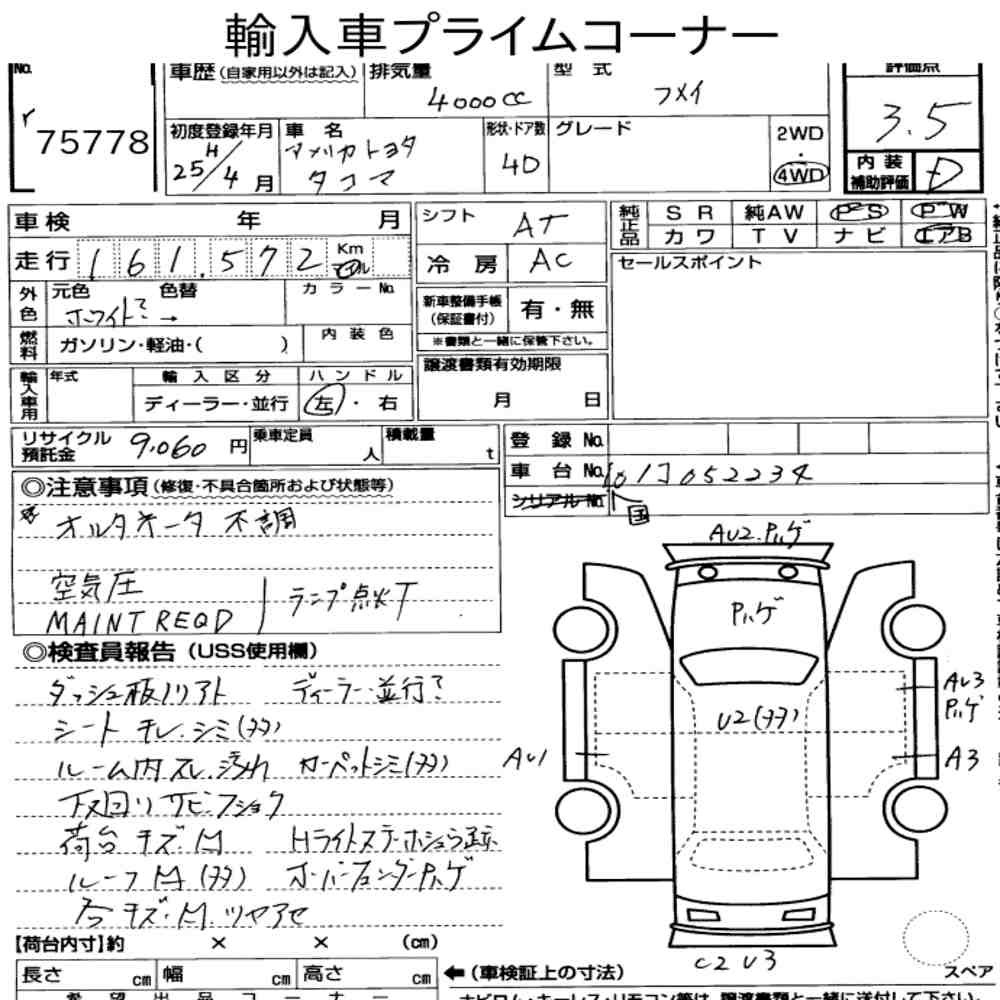 輸入車プライムコーナー
No.
75778
車歴(自家用以外は記入)
排気量
4000cc
型式
フメイ
評価点
3.5
初度登録年月
H
25/4月
車名
アメリカトヨタ
タコマ
形状・ドア数
4D
グレード
2WD
・
4WD
内装
補助評価
D
車検 年 月
走行 161.572 Km
外色
元色 色替
ホワイト? →
カラーNo.
燃料
ガソリン・軽油・( )
内装色
輸入車用
年式
輸入区分
ディーラー・並行
ハンドル
左・右
シフト
AT
冷房
AC
新車整備手帳
(保証書付)
有・無
※書類と一緒に保管下さい。
譲渡書類有効期限
月 日
純正品
SR 純AW PS PW
カワ TV ナビ エアB
セールスポイント
リサイクル
預託金
9,060 円
乗車定員
人
積載量
t
登録No.
車台No.
シリアルNo.
国
◎注意事項(修復・不具合箇所および状態等)
オルタネータ 不調
空気圧
MAINT REQD
ランプ点灯
◎検査員報告(USS使用欄)
ダッシュ板ノリアト ディーラー・並行?
シート キレ.シミ(多)
ルーム内スレ.汚れ カーペットシミ(多)
下廻リサビ.フショク
荷台キズ.凹
ルーフ凹(多) オーバーフェンダーPハゲ
キズ.凹.ツヤアセ
AU2.Pハゲ
Pハゲ
U2(多)
AU1
AU3
Pハゲ
A3
C2 U3
スペア
【荷台内寸】約 × × (cm)
長さ cm
幅 cm
高さ cm
←(車検証上の寸法)
希望出品コーナー